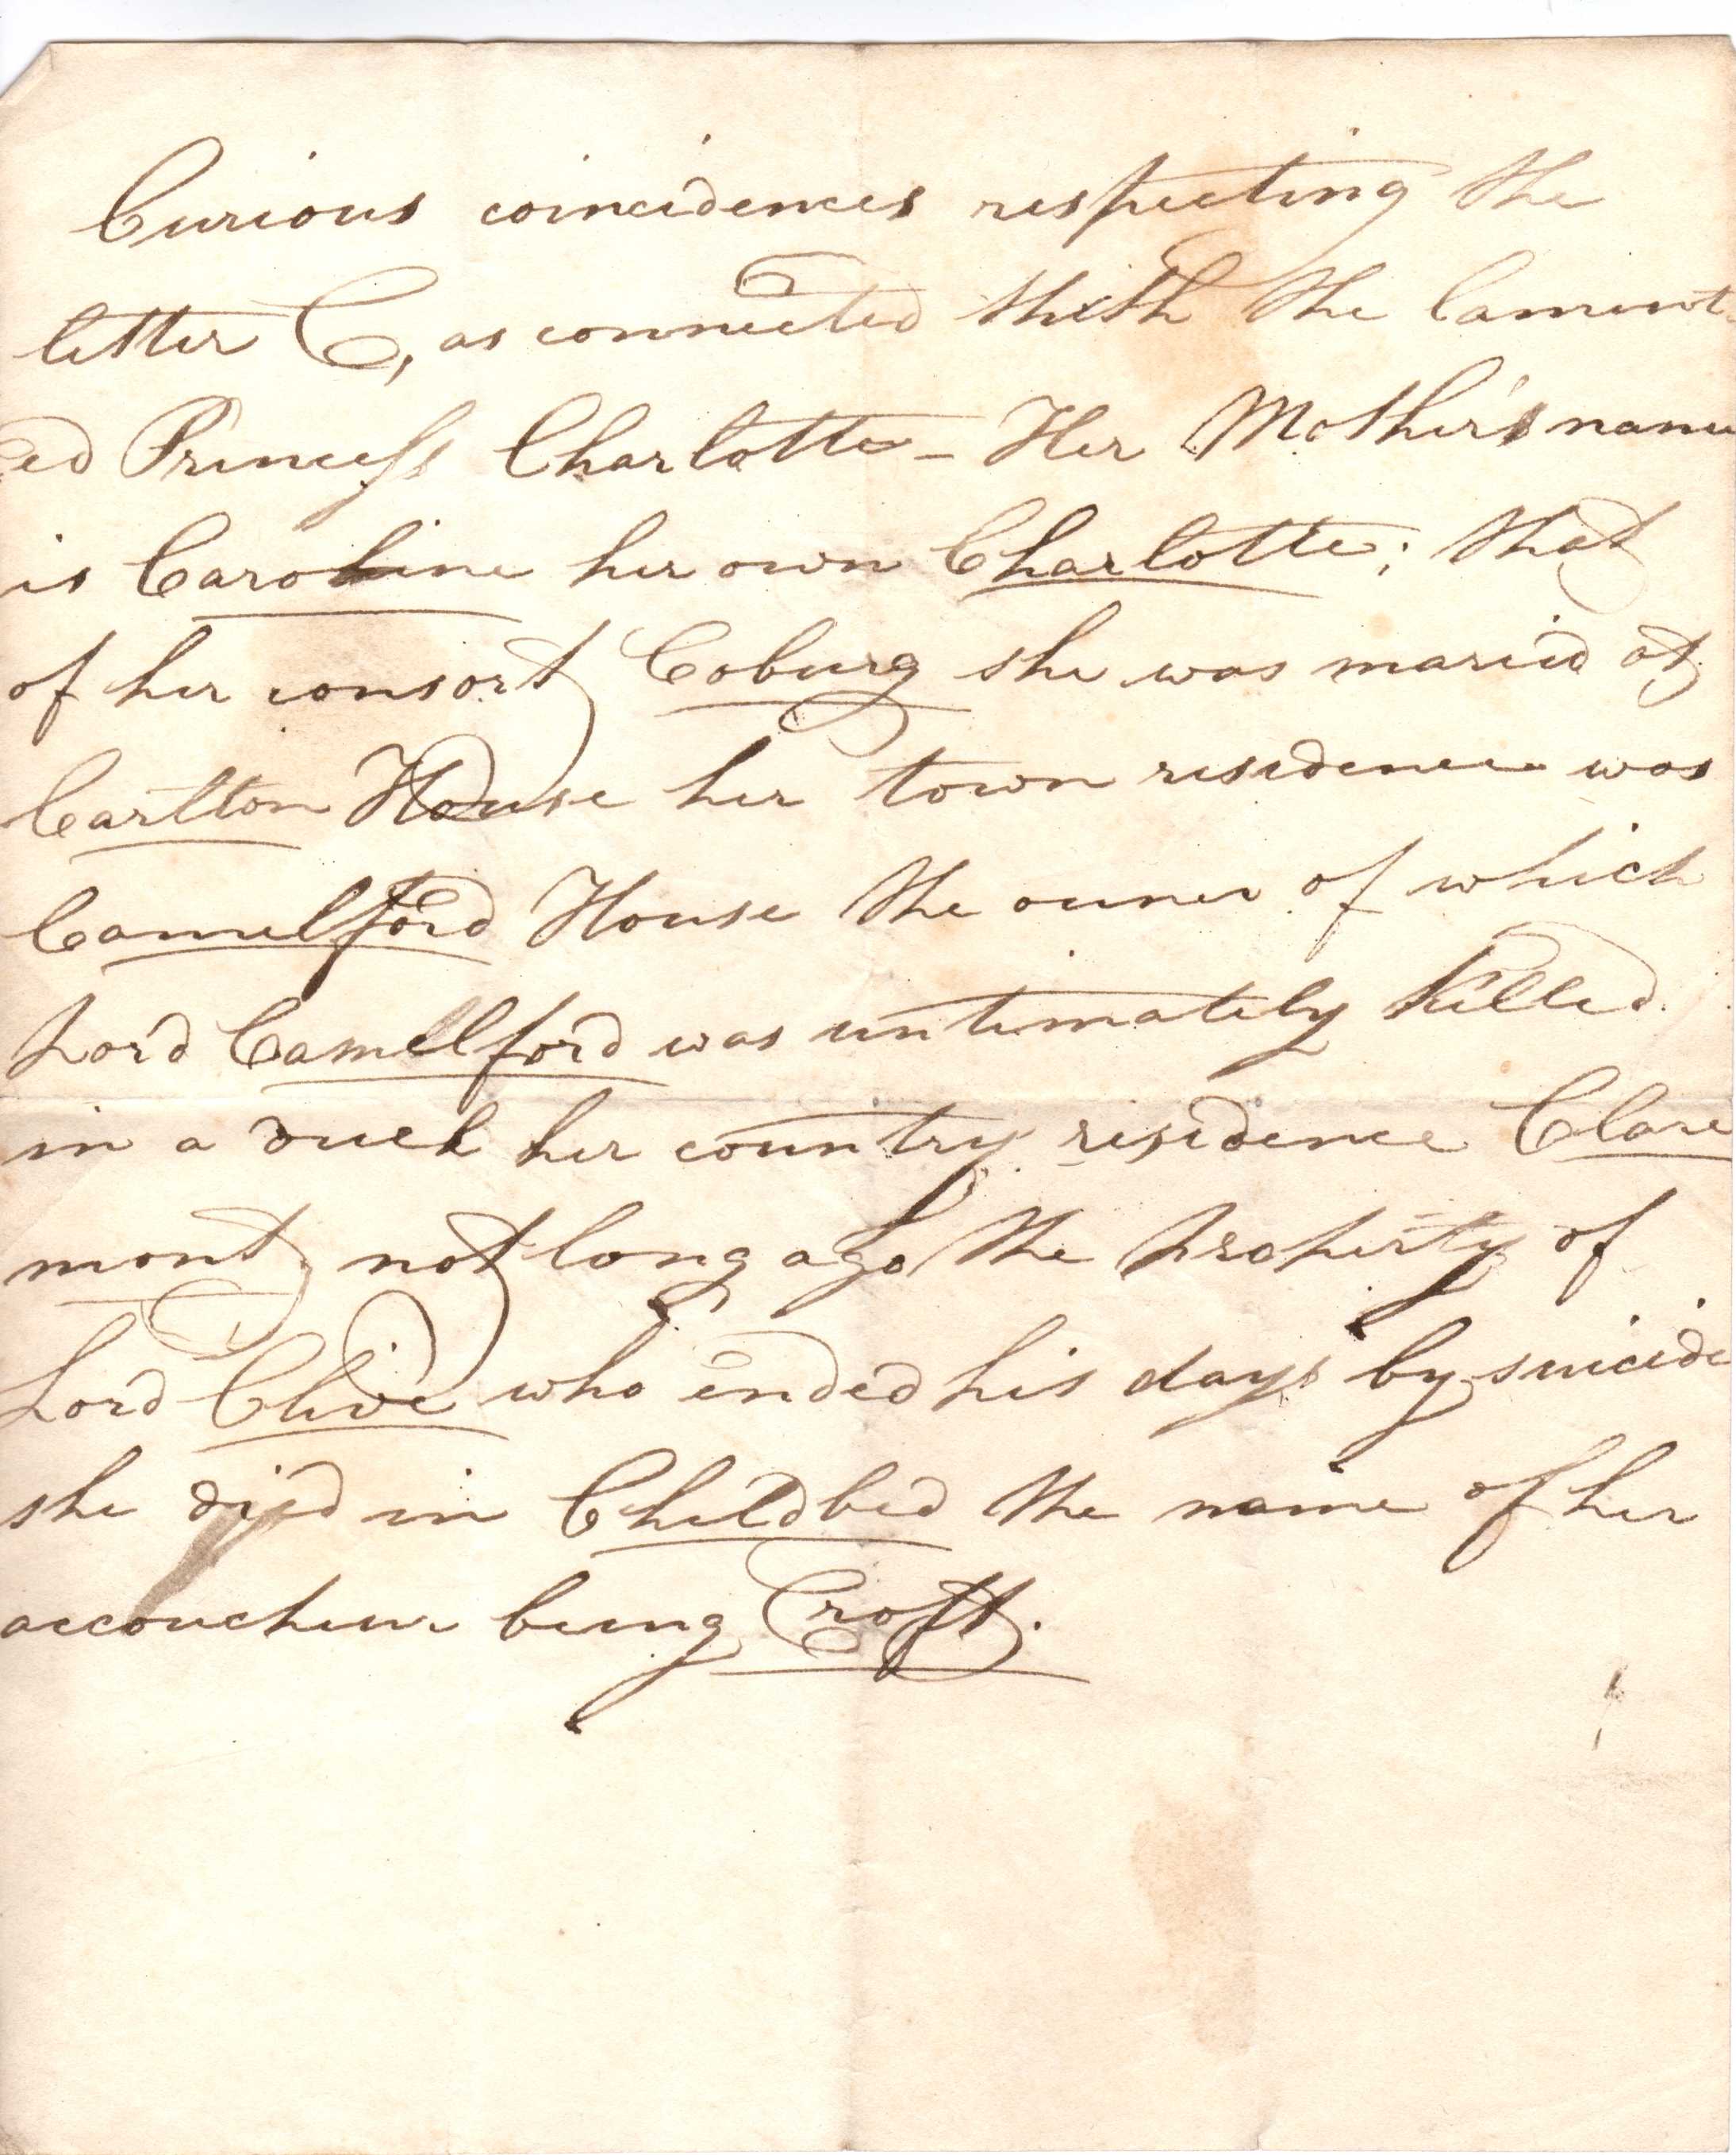 Curious coincidences respecting the
letter C, as connected with the lament
ed Princess Charlotte - Her Mother's name
is Caroline her own Charlotte; that
of her consort Coburg she was maried at
Carlton House her town residence was
Camelford House the owner of which
Lord Camellford was untimately killed
in a duel her country residence Clare
mont not long ago the property of
Lord Clive who ended his days by suicide
she died in Childbed the name of her
accoucheur being Croft.